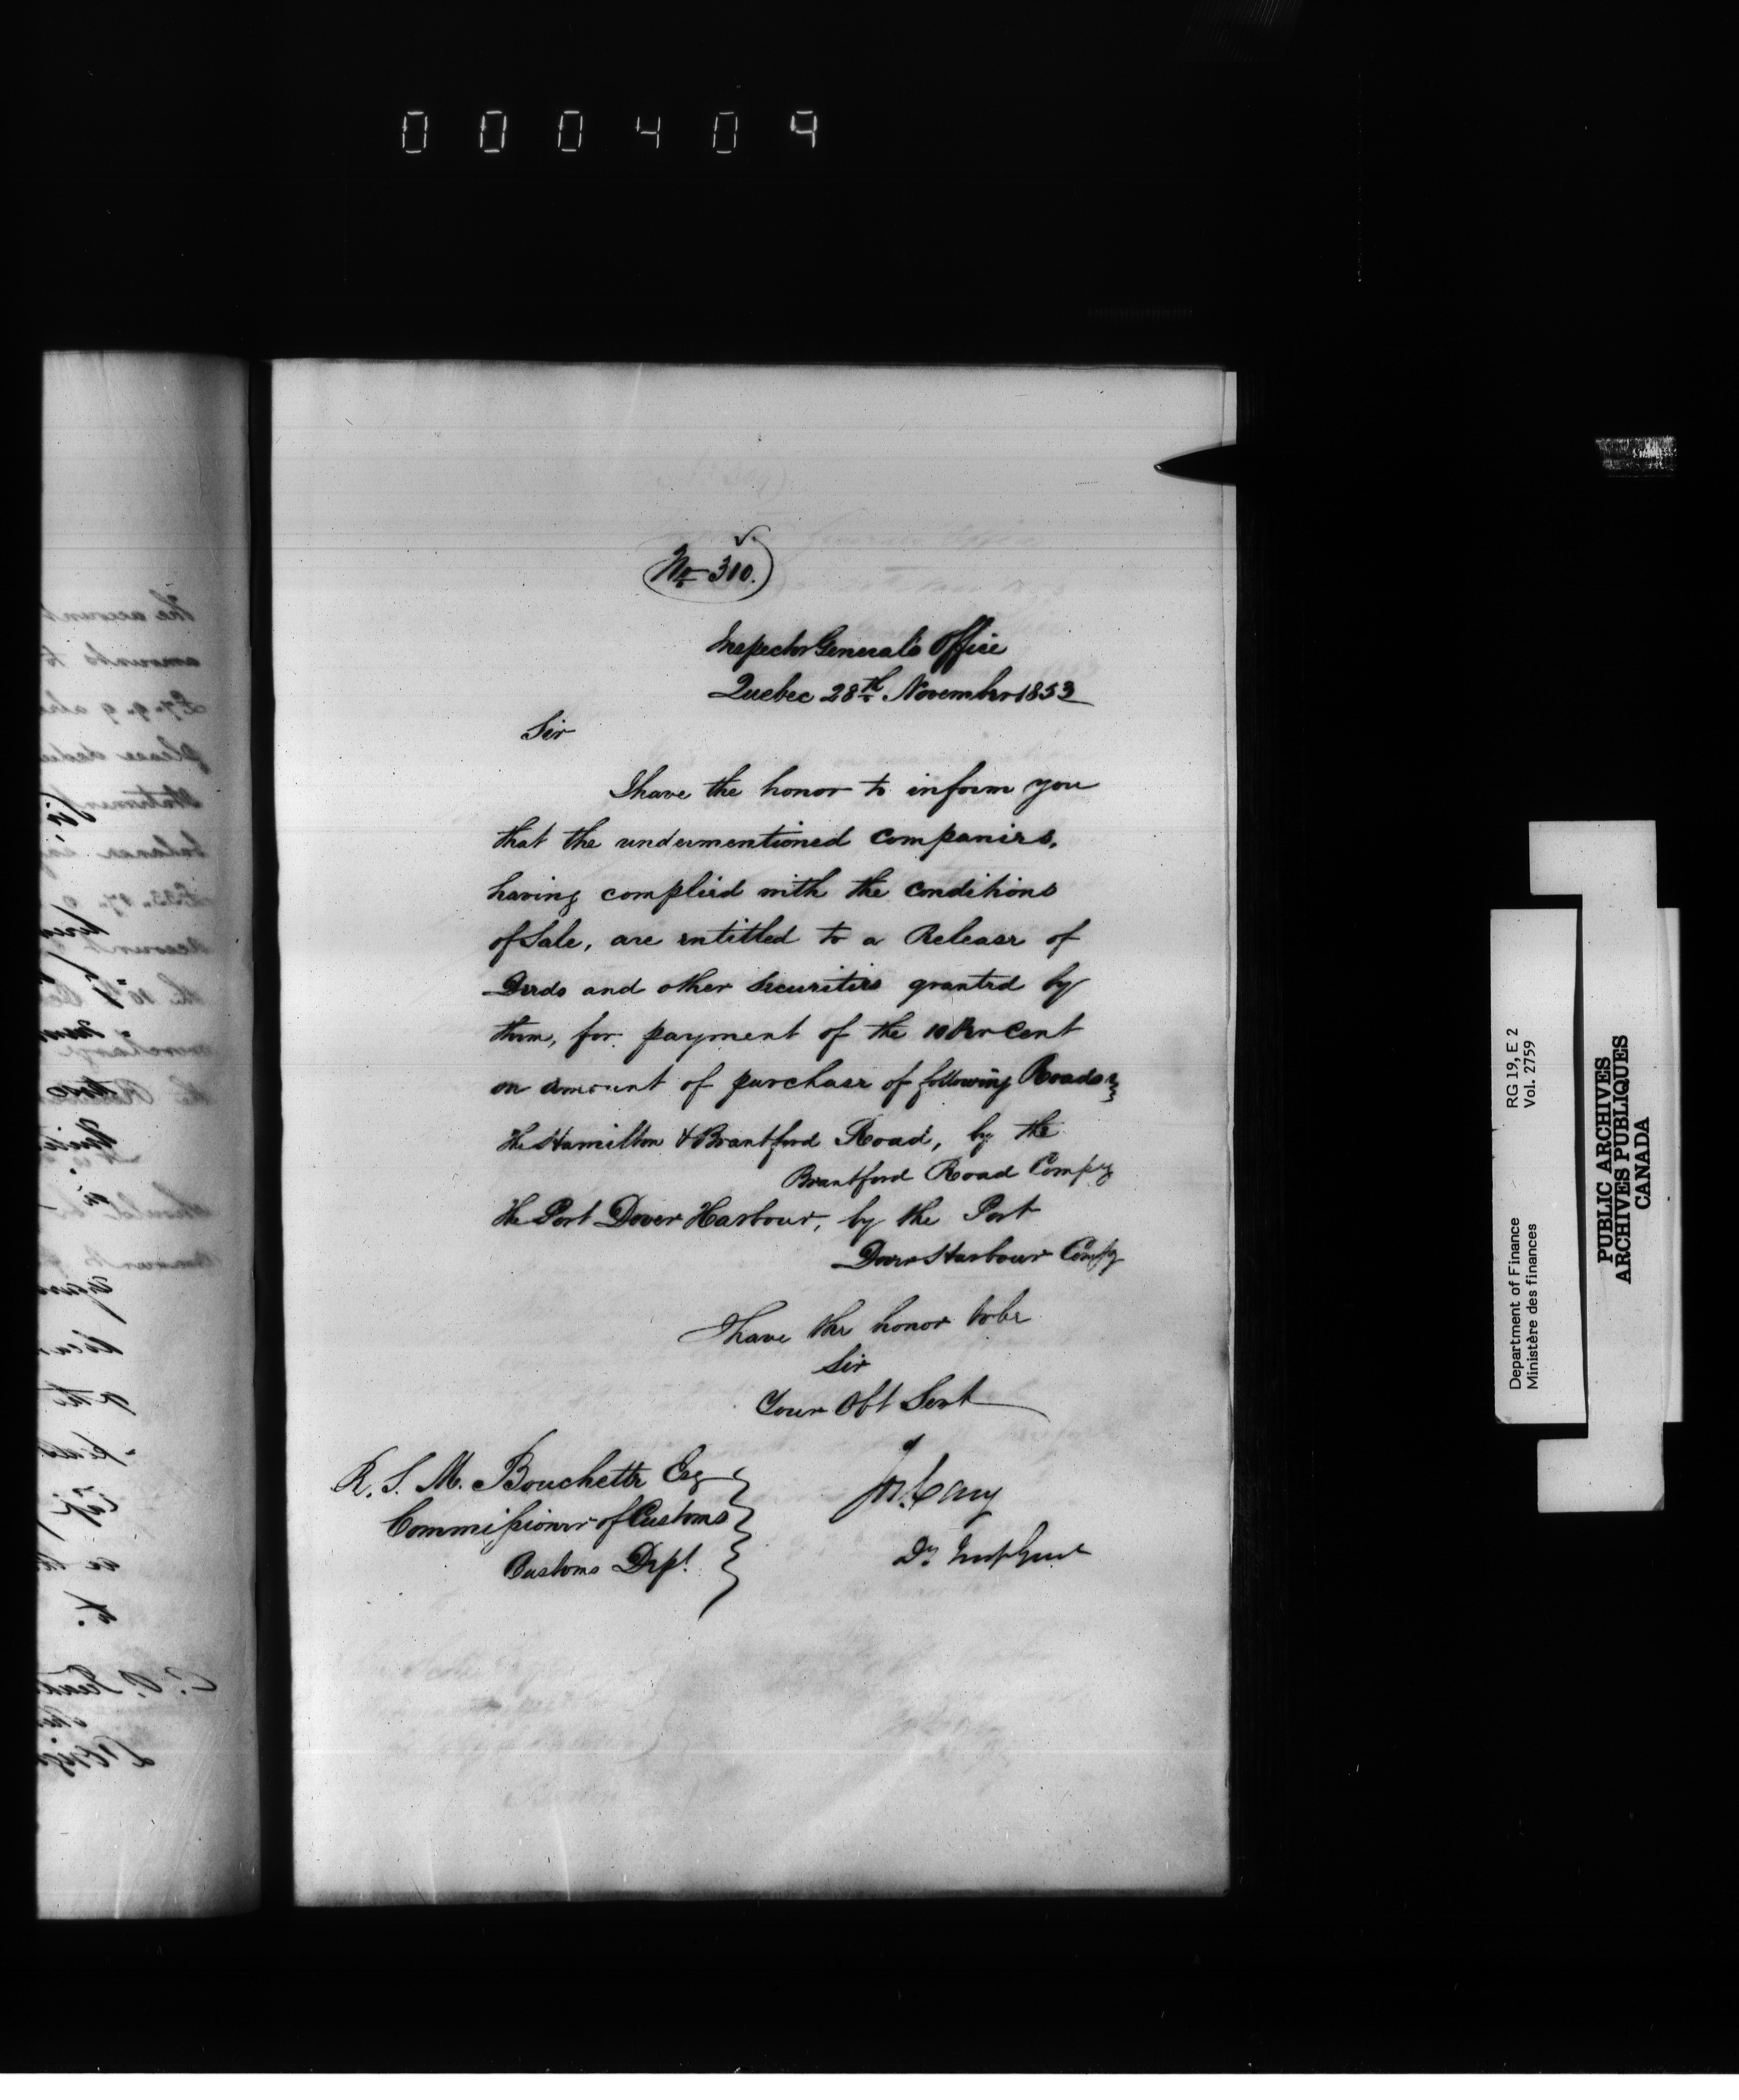 000409
No 310.
Inspector General's Office
Quebec 28th November 1853
Sir
I have the honor to inform you
that the undermentioned Companies,
having complied with the Conditions
of Sale, are entitled to a Release of
Deeds and other Securities granted by
them, for payment of the 10 Per Cent
on amount of purchase of following Roads
The Hamilton & Brantford Road, by the
Brantford Road Compy
The Port Dover Harbour, by the Port
Dover Harbour Compy
I have the honor to be
Sir
Your Obt Servt
Jos. Cary
Dy Insp Genl
R. S. M. Bouchette Esq
Commissioner of Customs
Customs Dept.
The account
amounts to
£7. 9. 9
please
balance
account
C. A.
RG 19, E 2
Vol. 2759
Department of Finance
Ministère des finances
PUBLIC ARCHIVES
ARCHIVES PUBLIQUES
CANADA